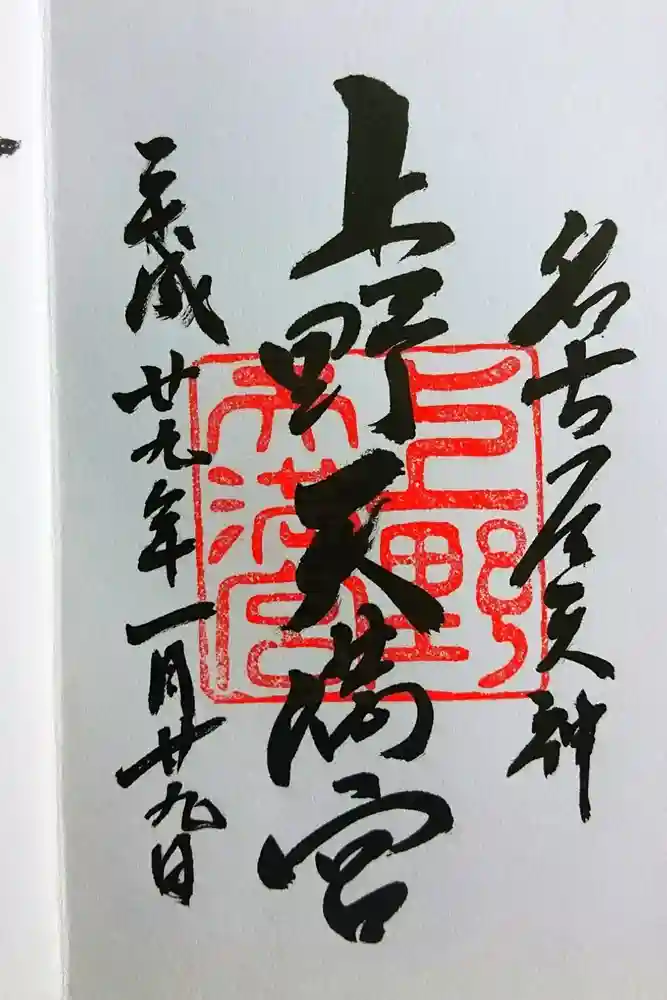 名古屋天神
上野天満宮
上野
天満宮
平成廿九年一月廿九日